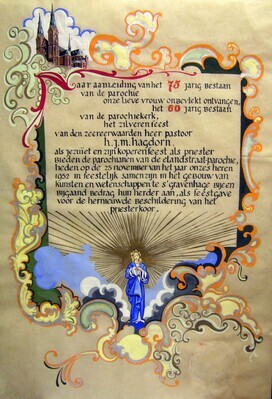 Naar aanleiding van het 75 jarig bestaan
van de parochie
onze lieve vrouw onbevlekt ontvangen,
het 60 jarig bestaan
van de parochiekerk,
het zilverenfeest
van den zeereerwaarden heer pastoor
h.j.m. hagdorn.
als jezuïet en zijn koperenfeest als priester
bieden de parochianen van de elandstraat-parochie,
heden op de 25 november van het jaar onzes heren
1952 in feestelijk samenzijn in het gebouw van
kunsten en wetenschappen te 's gravenhage bijeen
bijgaand bedrag hun herder aan, als feestgave
voor de hernieuwde beschildering van het
priesterkoor.